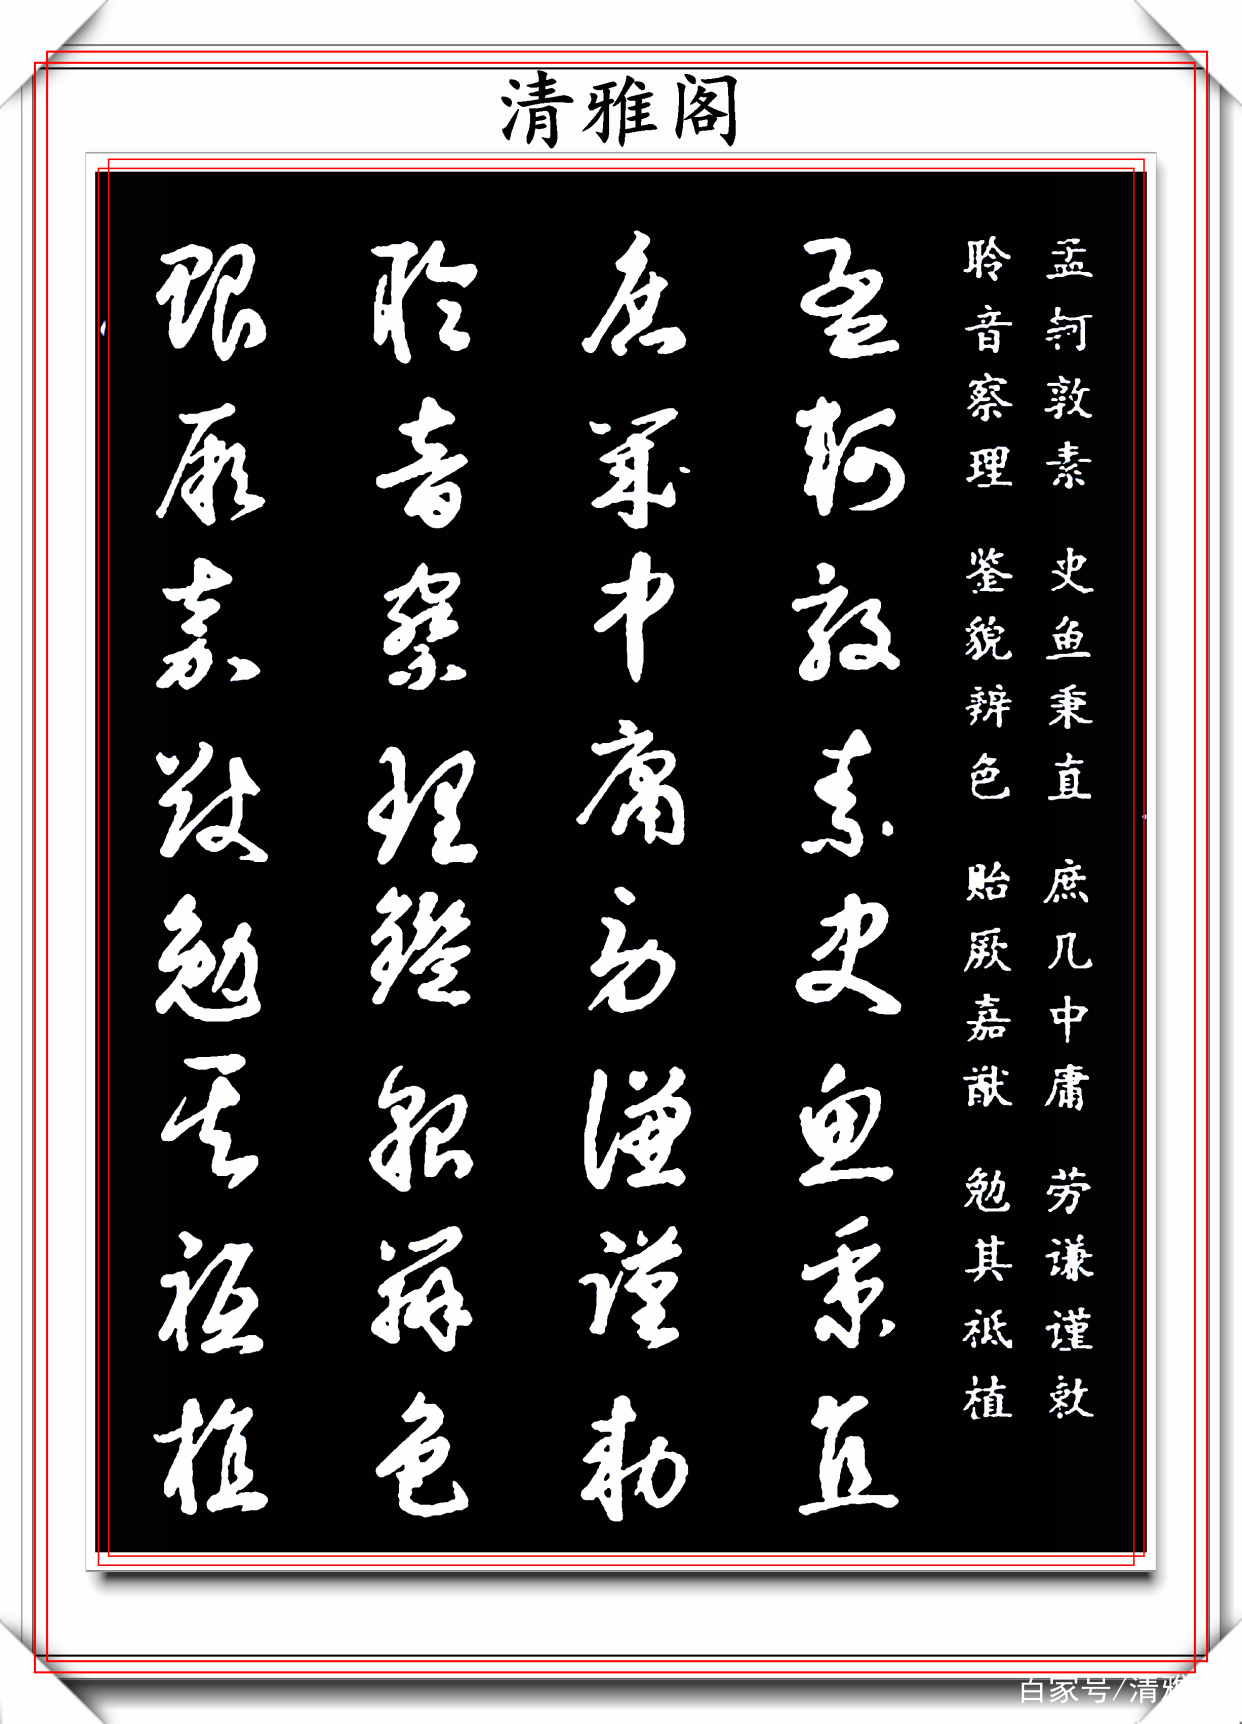 清雅阁
孟轲敦素 史鱼秉直 庶几中庸 劳谦谨敕
聆音察理 鉴貌辨色 贻厥嘉猷 勉其祗植
孟軻敦素史魚秉直
庶幾中庸勞謙謹勑
聆音察理鑑貌辨色
貽厥嘉猷勉其祗植
百家号/清雅